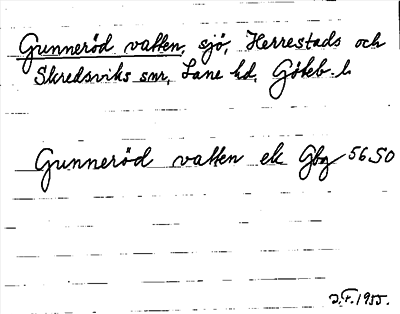 Gunneröd vatten, sjö, Herrestads och
Skredsviks snr, Lane hd, Göteb. l.
Gunneröd vatten ek Gbg 5650
J.F. 1955.